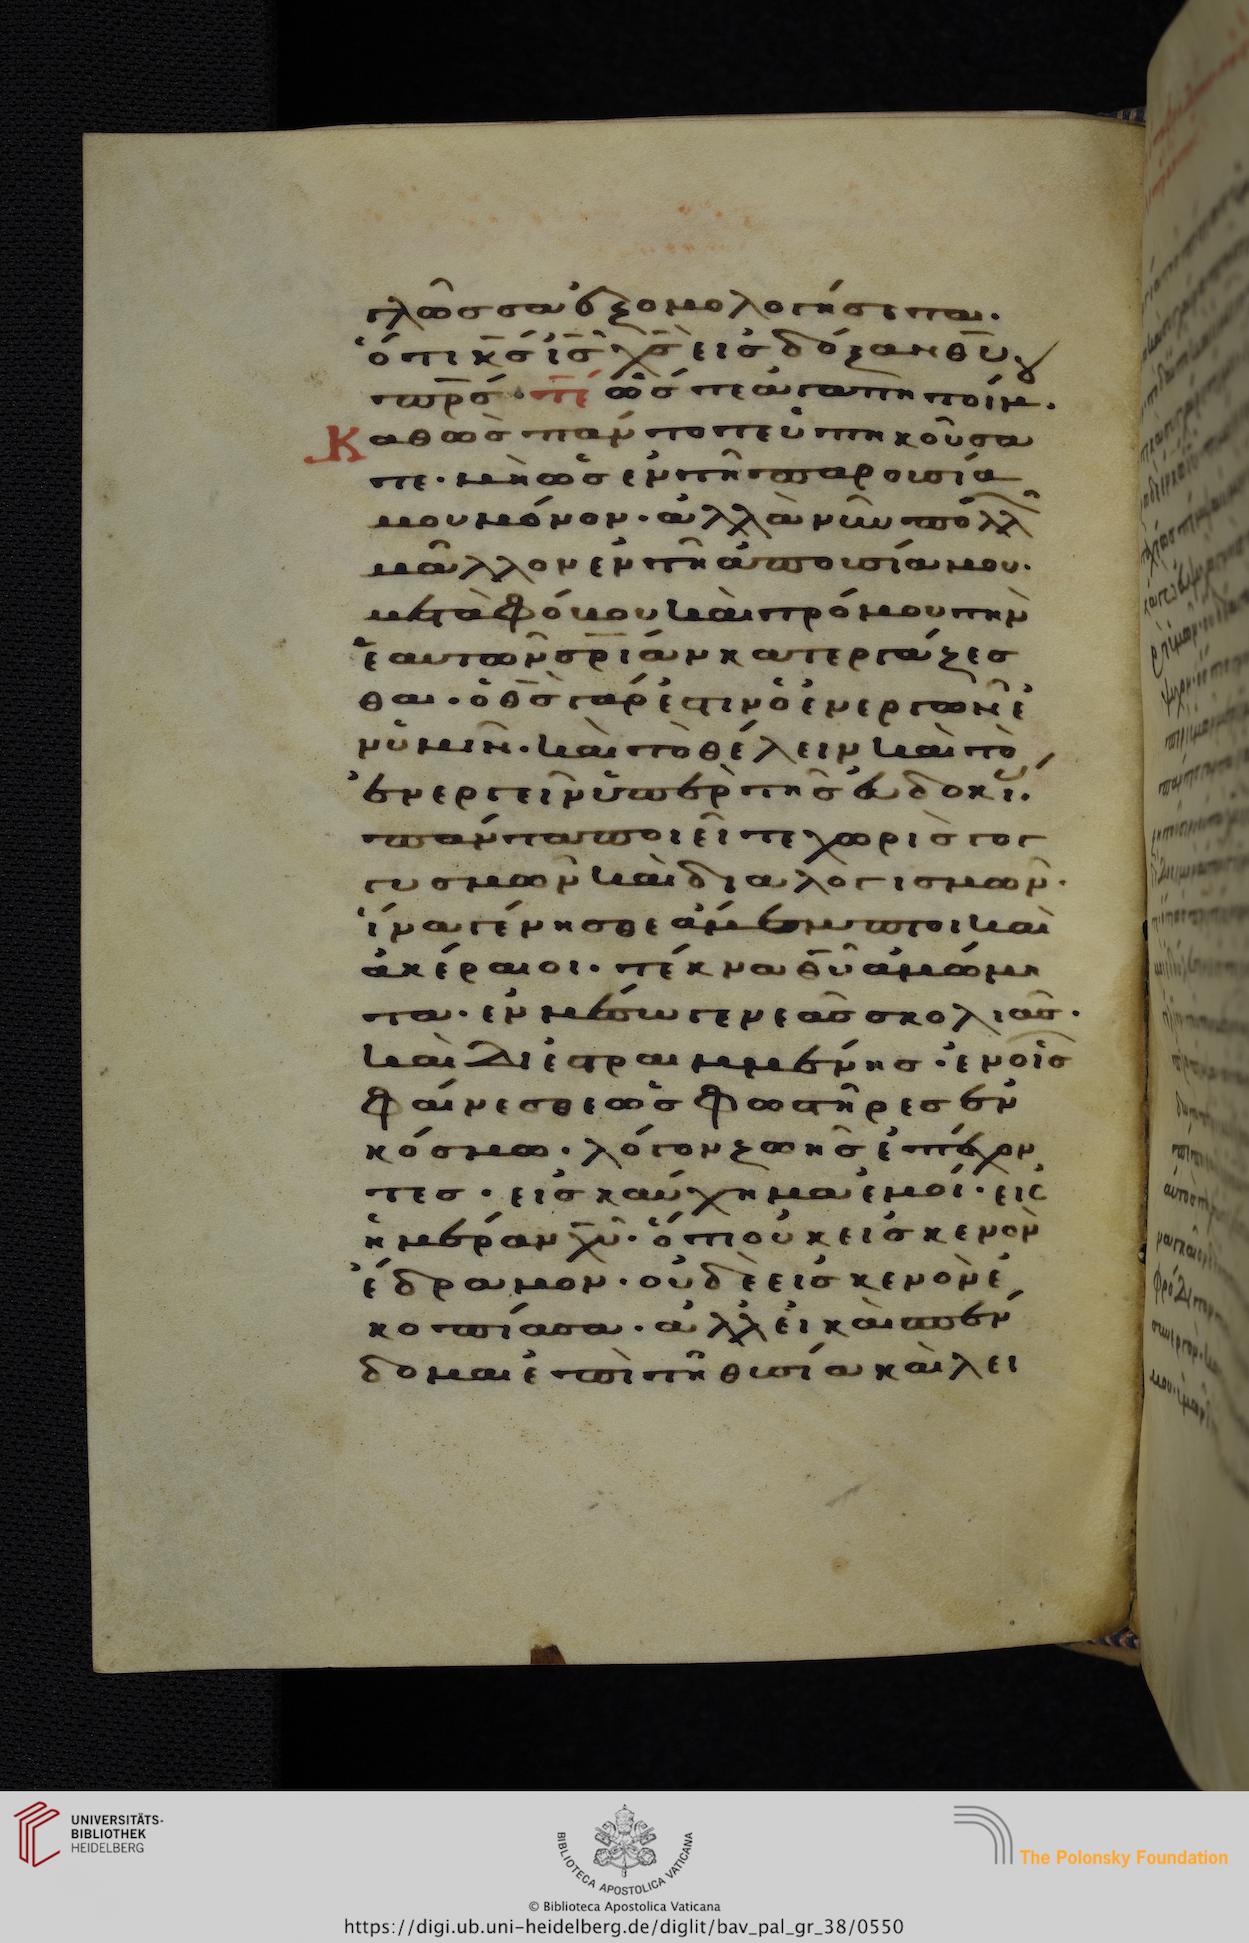 γλῶσσα ἐξομολογήσηται.
ὅτι κ̅ς̅ ι̅ς̅ χ̅ς̅ εἰς δόξαν θ̅υ̅
π̅ρ̅ς̅· τέ ὥστε ἀγαπητοί μ.
Καθὼς πάντοτε ὑπηκούσα
τε. μὴ ὡς ἐν τῆ παρουσία
μου μόνον. ἀλλὰ νῦν πολλῶ
μᾶλλον ἐν τῆ ἀπουσία μου.
μετὰ φόβου καὶ τρόμου τὴν
ἑαυτῶν σ̅ρ̅ίαν κατεργάζεσ
θαι. ὁ θ̅ς̅ γάρ ἐστιν ὁ ἐνεργῶν ἐ
ν ὑμῖν. καὶ τὸ θέλειν καὶ τὸ
ἐνεργεῖν ὑπὲρ τῆς εὐδοκί.
πάντα ποιεῖτε χωρὶς γογ
γυσμῶν καὶ διαλογισμῶν.
ἵνα γένησθε ἄμεμπτοι καὶ
ἀκέραιοι. τέκνα θ̅υ̅ ἀμώμη
τα. ἐν μέσω γενεᾶς σκολιᾶς.
καὶ διεστραμμένης. ἐν οἷς
φαίνεσθε ὡς φωστῆρες ἐν
κόσμω. λόγον ζωῆς ἐπέχον
τες. εἰς καύχημα ἐμοί. εἰς
ἡμέραν χ̅υ̅. ὅτι οὐκ εἰς κενὸν
ἔδραμον. οὐδὲ εἰς κενὸν ἐ
κοπίασα. ἀλλ εἰ καὶ σπέν
δομαι ἐπὶ τῆ θυσία καὶ λει
UNIVERSITÄTS-
BIBLIOTHEK
HEIDELBERG
BIBLIOTECA APOSTOLICA VATICANA
The Polonsky Foundation
© Biblioteca Apostolica Vaticana
https://digi.ub.uni-heidelberg.de/diglit/bav_pal_gr_38/0550